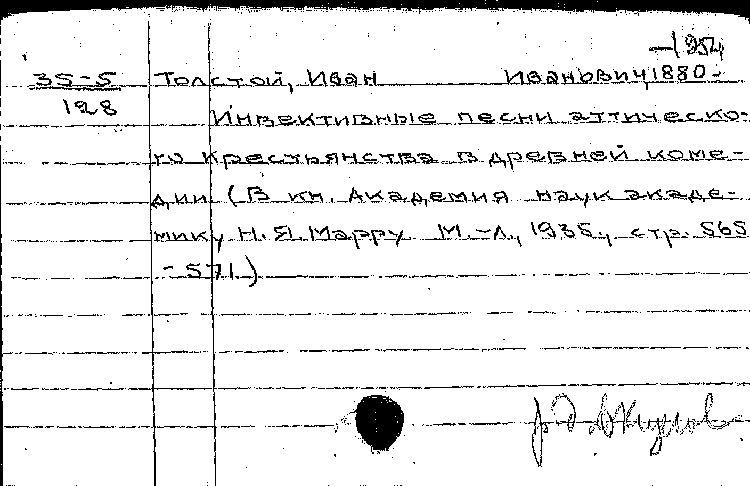 -1954
35-5 Толстой, Иван Иванович, 1880-
128
Инвективные песни аттическо-
го крестьянства в древней коме-
дии (В кн. Академия наук акаде-
мику Н.Я.Марру М.-Л., 1935, стр. 565
- 571.)